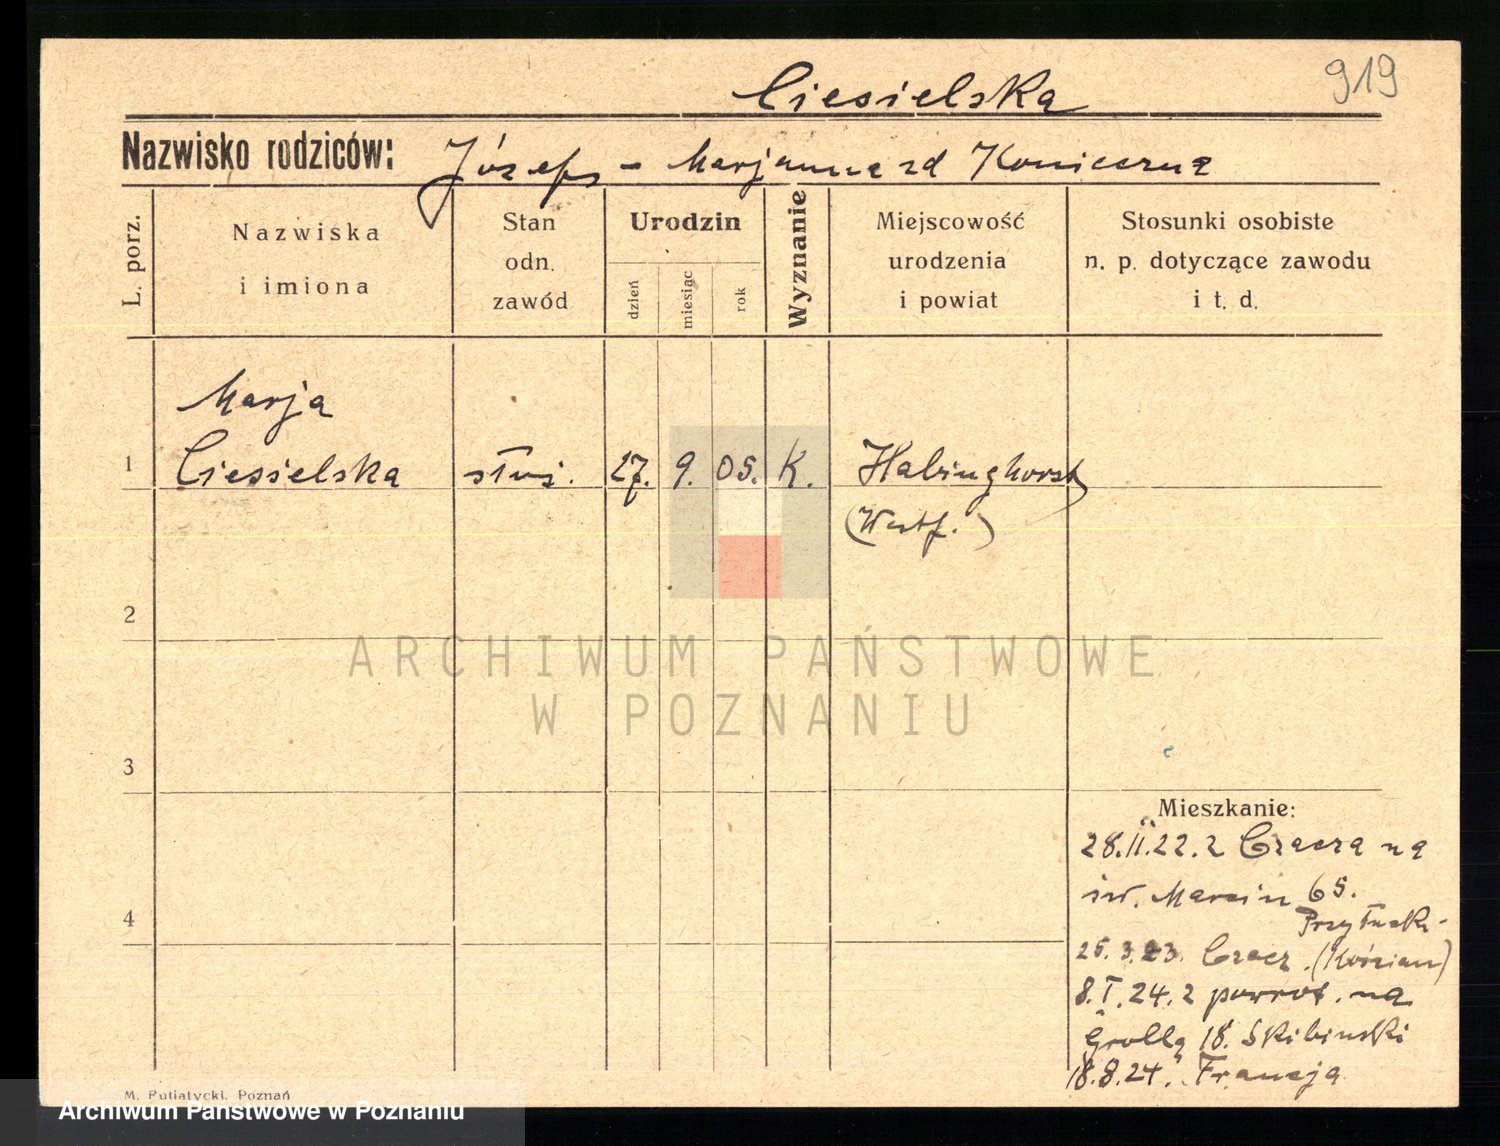 919
Ciesielska
Nazwisko rodziców: Józef - Marjanna zd Konieczna
L. porz.
Nazwiska i imiona
Stan odn. zawód
Urodzin
dzień
miesiąc
rok
Wyznanie
Miejscowość urodzenia i powiat
Stosunki osobiste n. p. dotyczące zawodu i t. d.
Marja
1 Ciesielska służ. 27. 9. 05. K. Habinghorst
(Westf.)
2
ARCHIWUM PAŃSTWOWE
W POZNANIU
3
Mieszkanie:
28.II.22. z Czacza na
św. Marcin 65.
Przyłuski
4
25.3.23. Czacz. (Kościan)
8.I.24. z powrot. na
Grollą 18. Skibinski
18.8.24. Francja
M. Putiatycki, Poznań
Archiwum Państwowe w Poznaniu